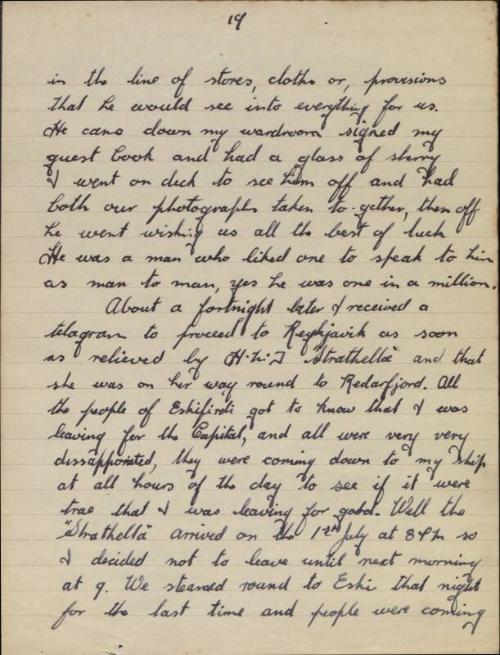 19
in the line of stores, clothes or, provisions
that he would see into everything for us.
He came down my wardroom signed my
guest book and had a glass of sherry
I went on deck to see him off and had
both our photographs taken to-gether, then off
he went wishing us all the best of luck
He was a man who liked one to speak to him
as man to man, yes he was one in a million.
About a fortnight later I received a
telegram to proceed to Reykjavik as soon
as relieved by H.M.T "Strathella" and that
she was on her way round to Redarfjord. All
the people of Eskifirdi got to know that I was
leaving for the Capital, and all were very very
dissappointed, they were coming down to my ship
at all hours of the day to see if it were
true that I was leaving for good. Well the
"Strathella" arrived on the July at 8 PM so
I decided not to leave until next morning
at 9. We steamed round to Eski that night
for the last time and people were coming